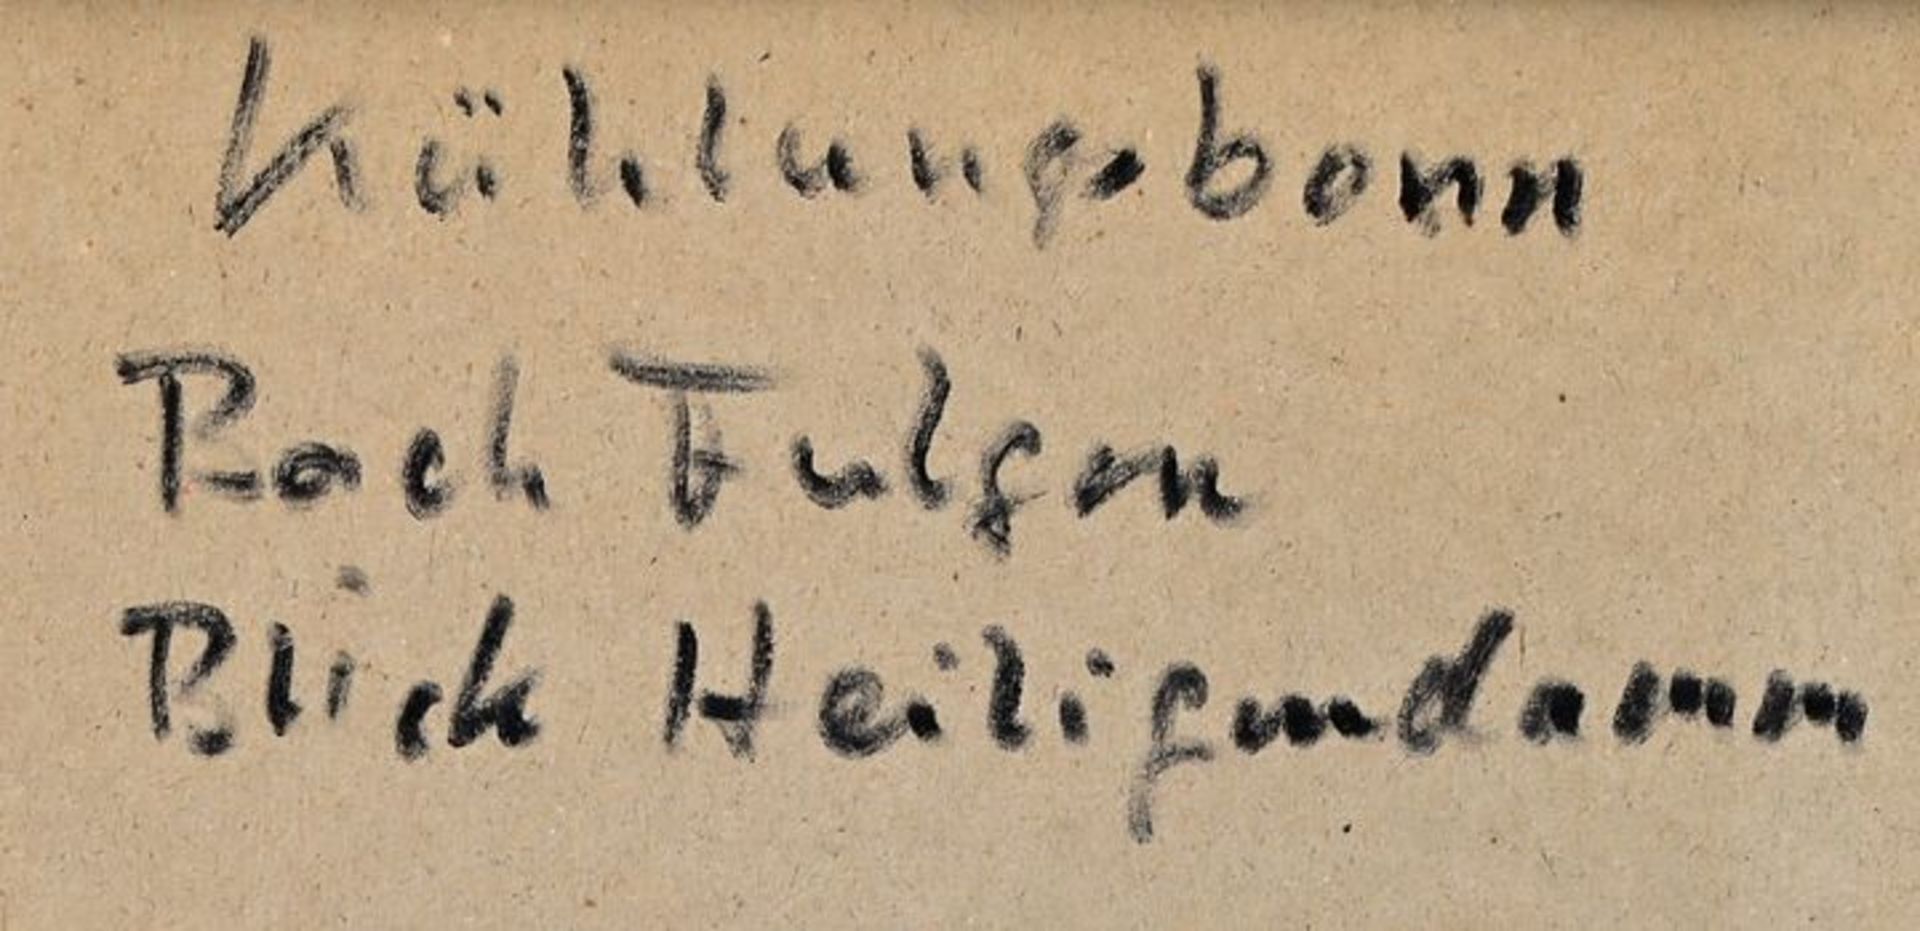 Kühlungsborn
Bach Fulgen
Blick Heiligendamm